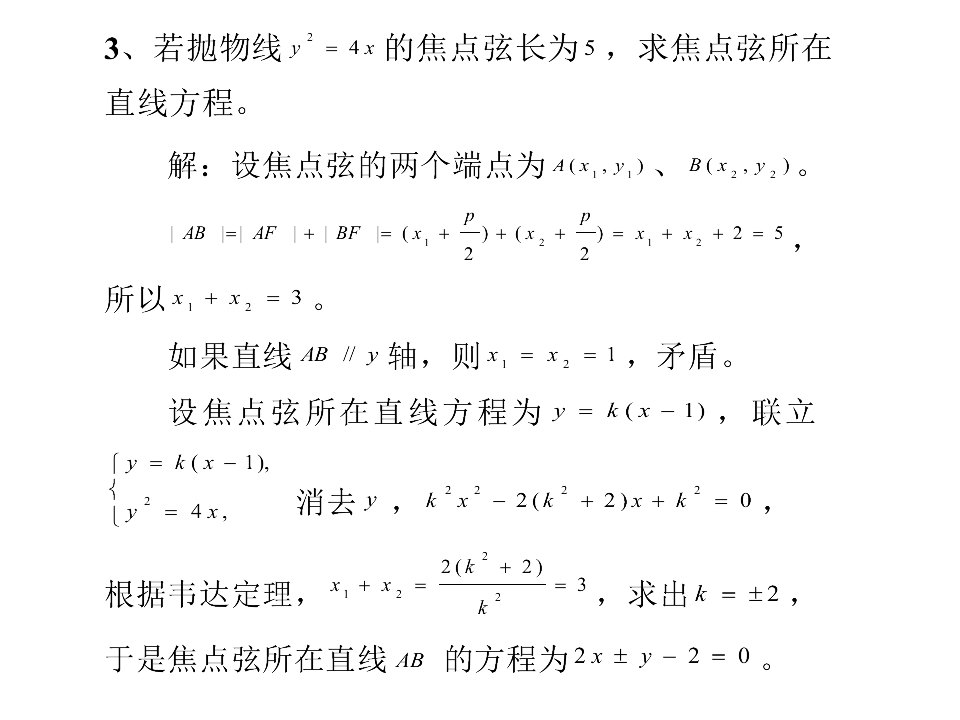 3、若抛物线 y² = 4x 的焦点弦长为5，求焦点弦所在
直线方程。
解：设焦点弦的两个端点为 A(x₁, y₁)、B(x₂, y₂)。
|AB|=|AF|+|BF|=(x₁ + p/2)+(x₂ + p/2) = x₁ + x₂ + 2 = 5，
所以 x₁ + x₂ = 3。
如果直线 AB // y 轴，则 x₁ = x₂ = 1，矛盾。
设焦点弦所在直线方程为 y = k(x − 1)，联立
{ y = k(x − 1), y² = 4x, 消去 y，k²x² − 2(k² + 2)x + k² = 0，
根据韦达定理，x₁ + x₂ = 2(k² + 2)/k² = 3，求出 k = ±2，
于是焦点弦所在直线 AB 的方程为 2x ± y − 2 = 0。